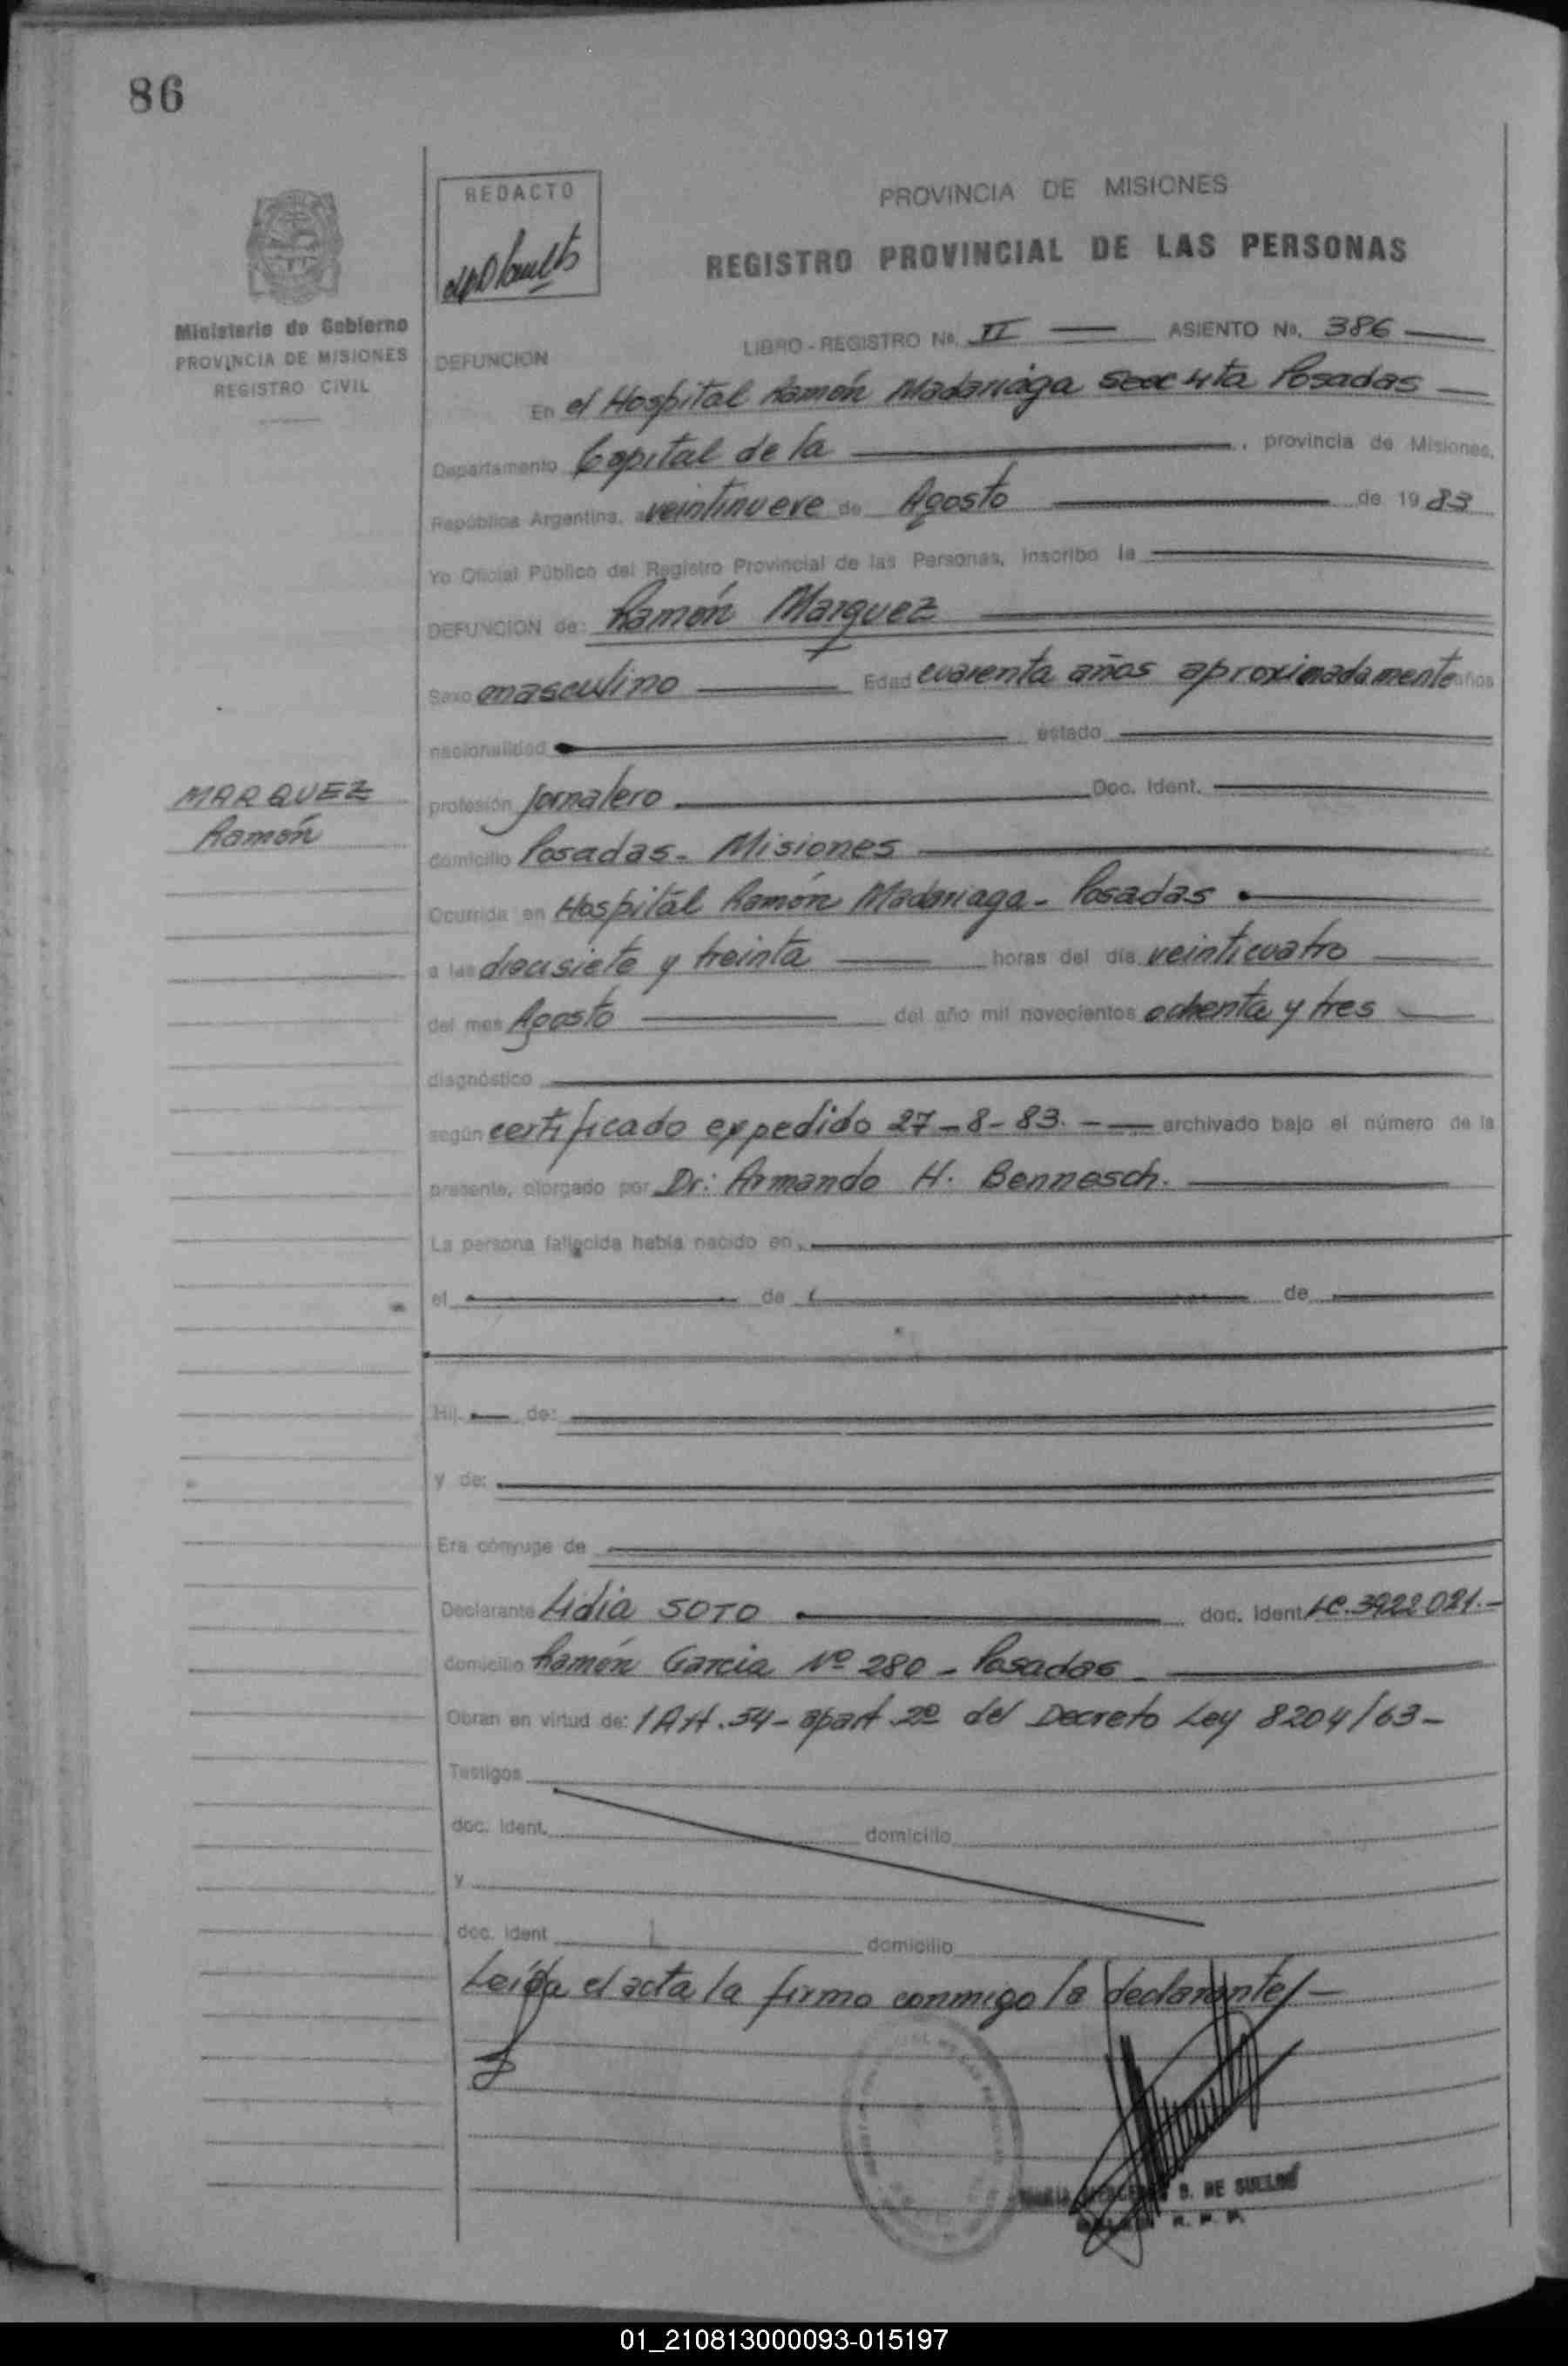 86
REDACTO
PROVINCIA DE MISIONES
REGISTRO PROVINCIAL DE LAS PERSONAS
Ministerio de Gobierno
PROVINCIA DE MISIONES
REGISTRO CIVIL
DEFUNCION
LIBRO - REGISTRO No. II ASIENTO No. 386
En el Hospital Ramón Madariaga Secc 4ta Posadas
Departamento Capital de la , provincia de Misiones,
República Argentina, a veintinueve de Agosto de 1983
Yo Oficial Público del Registro Provincial de las Personas, inscribo la
DEFUNCION de: Ramón Marquez
Sexo masculino Edad cuarenta años aproximadamente años
nacionalidad estado
MARQUEZ
Ramón
profesión Jornalero Doc. Ident.
domicilio Posadas - Misiones
Ocurrida en Hospital Ramón Madariaga - Posadas
a las diecisiete y treinta horas del día veinticuatro
del mes Agosto del año mil novecientos ochenta y tres
diagnóstico
según certificado expedido 27-8-83.- archivado bajo el número de la
presente, otorgado por Dr: Armando H. Bennesch.
La persona fallecida había nacido en,
el de de
Hij. de:
y de:
Era cónyuge de
Declarante Lidia SOTO doc. Ident. LC. 3922021.-
domicilio Ramón Garcia Nº 280 - Posadas
Obran en virtud de: / Art. 54 - apart. 2º del Decreto Ley 8204/63 -
Testigos
doc. Ident. domicilio
y
doc. Ident domicilio
Leída el acta la firma conmigo la declarante/-
B. DE
R. P. P.
01_210813000093-015197